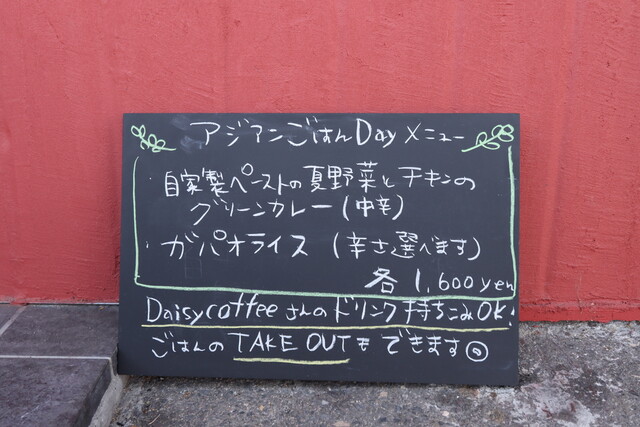 アジアンごはんDayメニュー
・自家製ペーストの夏野菜とチキンの
グリーンカレー(中辛)
・ガパオライス(辛さ選べます)
各1,600yen
Daisycoffeeさんのドリンク持ちこみOK!
ごはんのTAKE OUTもできます◎